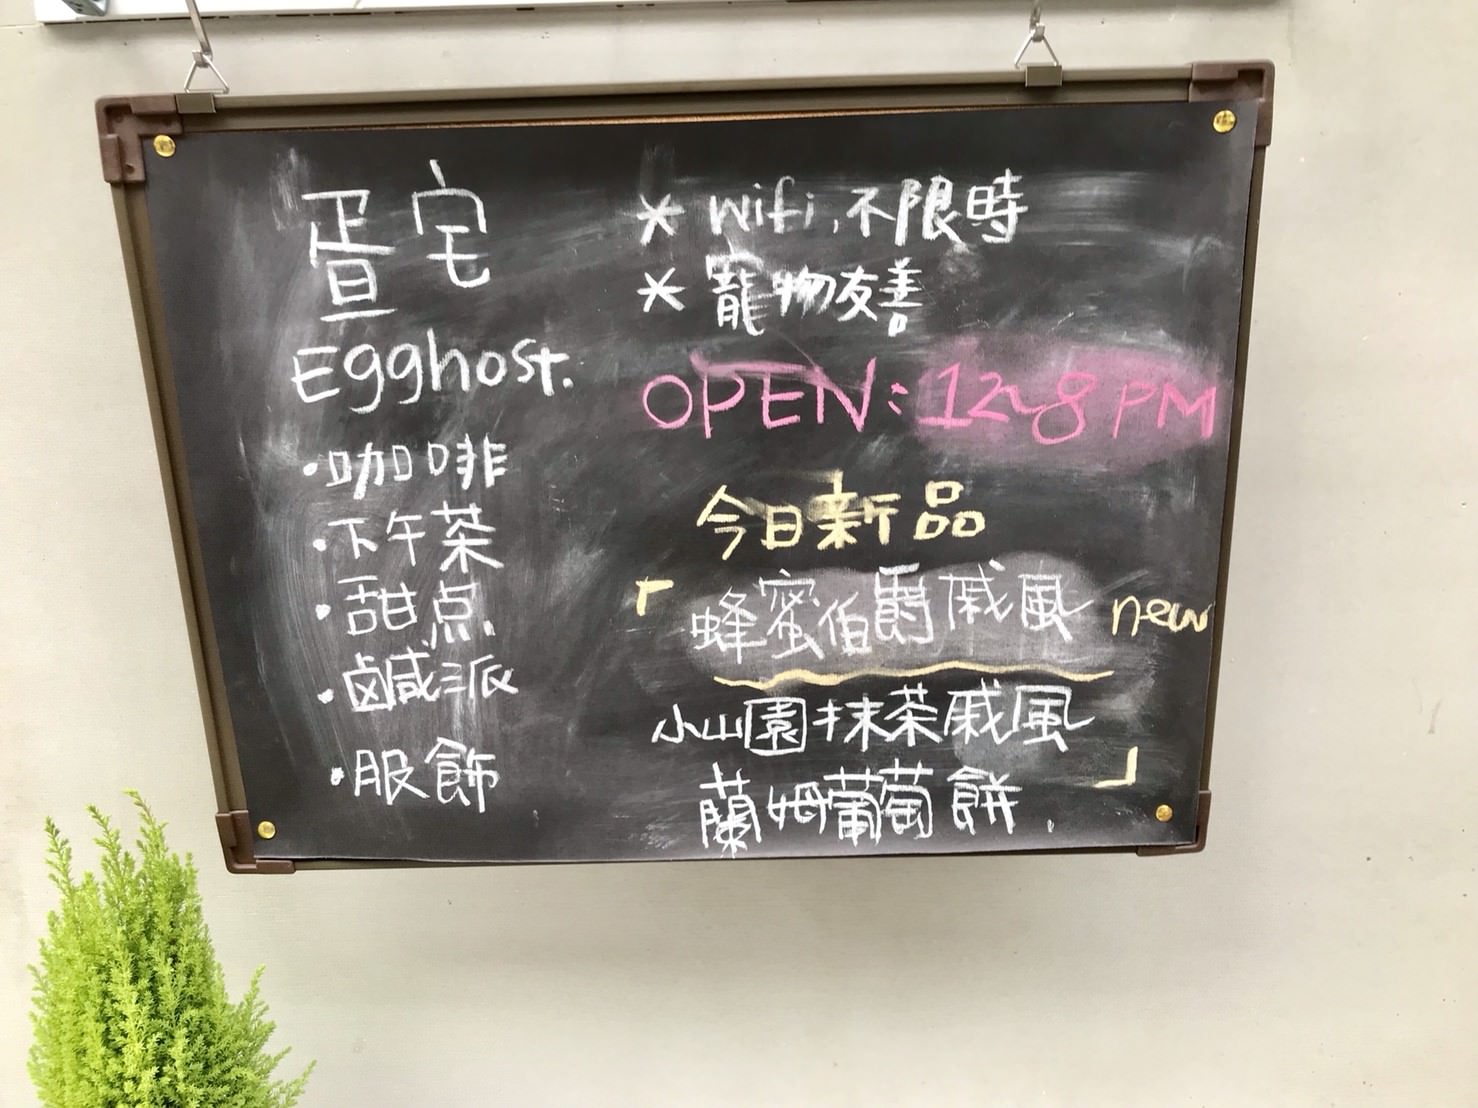 蛋宅
Egghost.
·咖啡
·下午茶
·甜点
·鹹派
·服飾
* wifi,不限時
* 寵物友善
OPEN:12~8PM
今日新品
「蜂蜜伯爵戚風 new
小山園抹茶戚風
蘭姆葡萄餅」